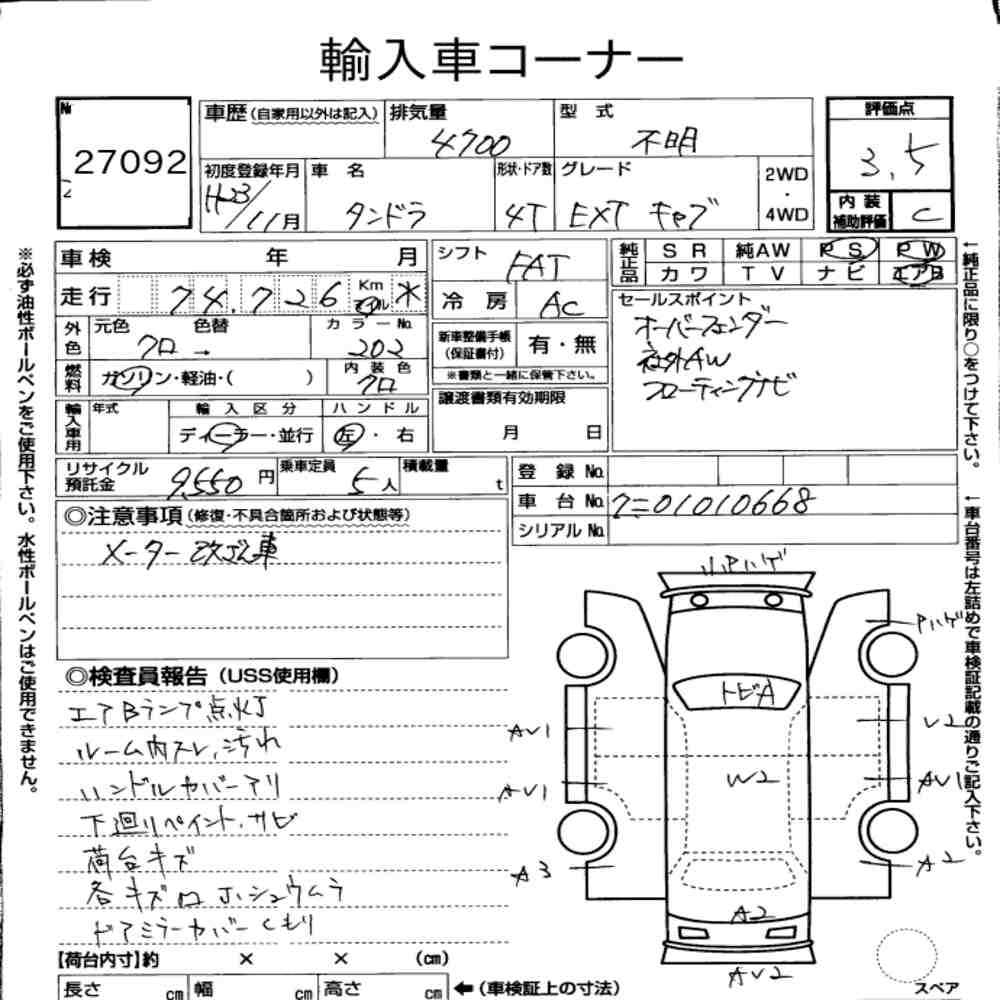 輸入車コーナー
№ 27092
2
車歴(自家用以外は記入) 排気量 4700 型式 不明
初度登録年月 H23/11月 車名 タンドラ 形状・ドア数 4T グレード EXT キャブ 2WD・4WD
評価点 3.5
内装補助評価 C
車検 年 月
走行 74.726 Km マイル *
外色 元色 クロ 色替 → カラーNo. 202
燃料 ガソリン・軽油・( ) 内装色 クロ
輸入車用 年式 輸入区分 ディーラー・並行 ハンドル 左・右
シフト FAT
冷房 AC
新車整備手帳(保証書付) 有・無
※書類と一緒に保管下さい。
譲渡書類有効期限 月 日
純正品 SR 純AW PS PW
カワ TV ナビ エアB
セールスポイント
オーバーフェンダー
社外AW
フローティングナビ
リサイクル預託金 9,550円 乗車定員 5人 積載量 t
登録No.
車台No. クニ01010668
シリアルNo.
◎注意事項(修復・不具合箇所および状態等)
メーター改ざん車
◎検査員報告(USS使用欄)
エアBランプ点灯
ルーム内スレ,汚れ
ハンドルカバーアリ
下廻りペイント.サビ
荷台キズ
各キズロ ホシュウムラ
ドアミラーカバーくもり
【荷台内寸】約 × × (cm)
長さ cm 幅 cm 高さ cm ←(車検証上の寸法)
リップハゲ
Pハゲ
トビA
AV1
U2
AV1
W2
AV1
A3
A2
A2
AV2
スペア
※必ず油性ボールペンをご使用下さい。水性ボールペンはご使用できません。
←純正品に限り○をつけて下さい。
←車台番号は左詰めで車検証記載の通りご記入下さい。